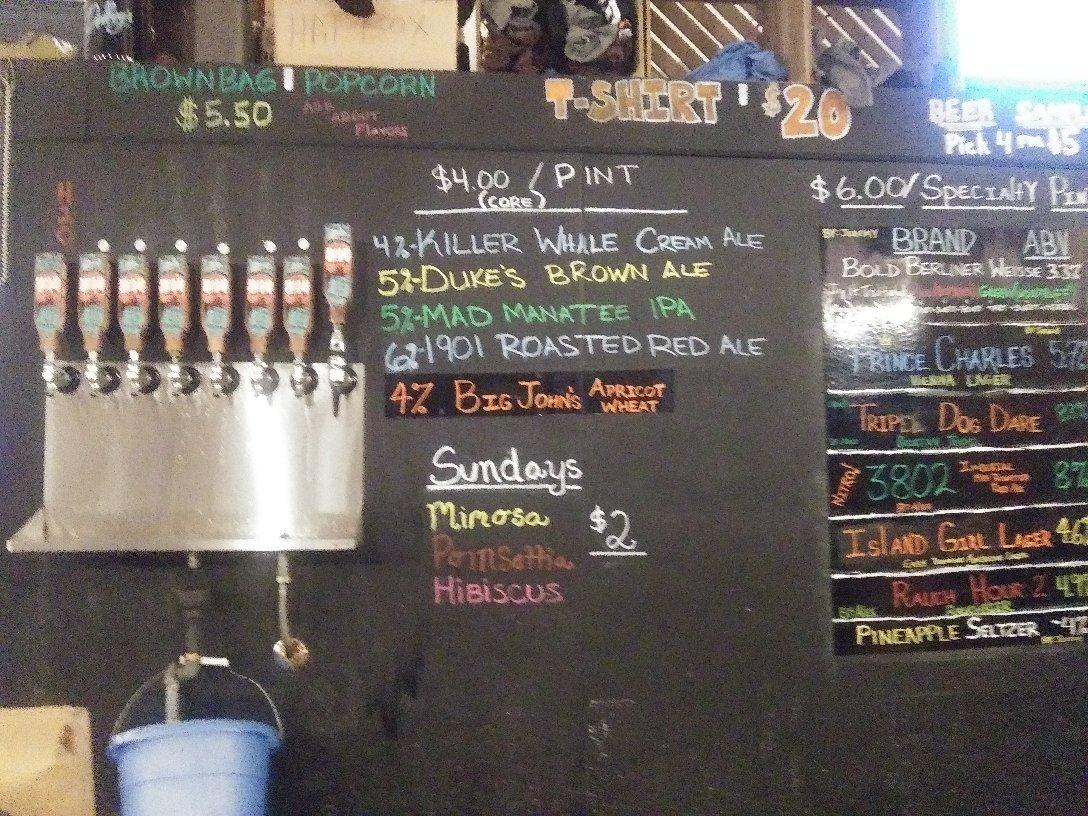 BROWNBAG POPCORN
$5.50
ASK ABOUT FLAVORS
T-SHIRT $20
BEER
Pick 4 FOR $5
$4.00 / PINT
(CORE)
4%-KILLER WHALE CREAM ALE
5%-DUKE'S BROWN ALE
5%-MAD MANATEE IPA
6%-1901 ROASTED RED ALE
4% BIG JOHN'S APRICOT WHEAT
Sundays
Mimosa $2
Poinsettia
HIBISCUS
$6.00/SPECIALTY
BRAND ABV
BOLD BERLINER WEISSE 3.3%
PRINCE CHARLES
VIENNA LAGER
TRIPEL DOG DARE
NITRO!
3802
IMPERIAL
ISLAND GIRL LAGER
RAUCH HOUR 2
PINEAPPLE SELTZER ~4%